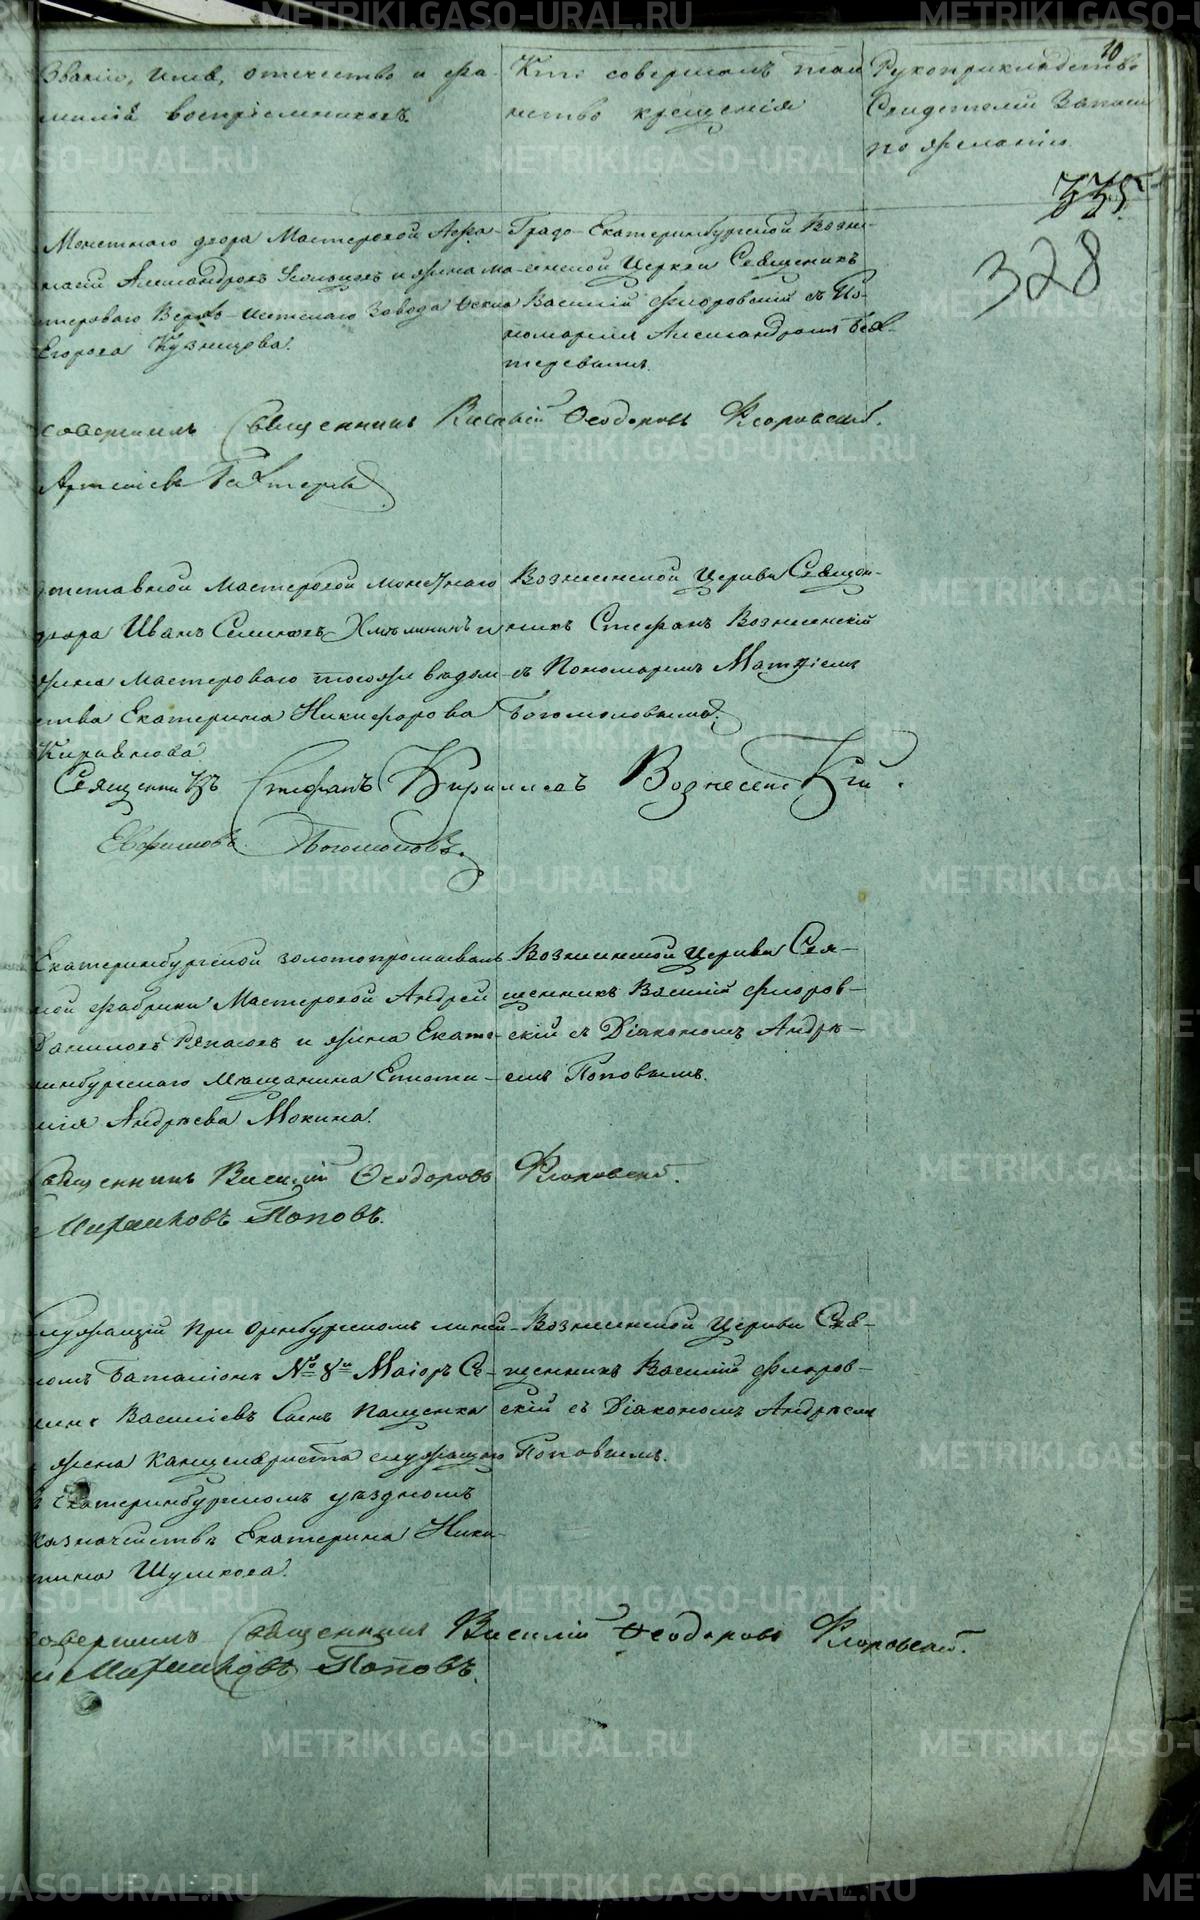 10
Званіе, имя, отчество и фа-
миліа воспріемниковъ.
Кто совершалъ таи
нство крещенія
Рукоприкладство
Свидетелей записи
по желанію.
335
328
Монетнаго двора Мастеровой Афа-
насій Александровъ и жена ма-
стероваго Верхъ-Исетскаго Завода
Егорова Кузнецова.
Градо-Екатеринбургской Возне-
сенской Церкви Священникъ
Василій Флоровскій съ По-
номаремъ Александромъ Бах-
теревымъ.
совершилъ Священникъ Василій Ѳеодоровъ Флоровскій.
Артеміевъ Бахтеревъ
отставной мастеровой монетнаго
двора Иванъ и
жена мастероваго тогожъ ведом-
ства Екатерина Никифорова
Вознесенской Церкви Священ-
никъ Стефанъ Вознесенскій
съ Пономаремъ Матѳіемъ
Богомоловымъ.
Священникъ Стефанъ Кирилловъ Вознесенскій.
Евфимовъ Богомоловъ.
Екатеринбургской золотопромываль-
ной фабрики Мастеровой Андрей
Даниловъ и жена Екате-
ринбургскаго Мещанина Еписти-
мія Андреева Мокина.
Вознесенской Церкви Свя-
щенникъ Василій Флоров-
скій съ Діакономъ Андре-
емъ Поповымъ.
Священникъ Василій Ѳеодоровъ Флоровскій.
Мироновъ Поповъ.
Служащій при Оренбургскомъ линей-
номъ баталіонѣ № 8й Маіоръ Се-
менъ Василіевъ Сынъ Пащенка
и жена канцеляриста служащаго
въ Екатеринбургскомъ уѣздномъ
казначействѣ Екатерина Ники-
тина Шумкова.
Вознесенской Церкви Свя-
щенникъ Василій Флоров-
скій съ Діакономъ Андреем
Поповымъ.
совершилъ Священникъ Василій Ѳеодоровъ Флоровскій.
Мироновъ Поповъ.
METRIKI.GASO-URAL.RU